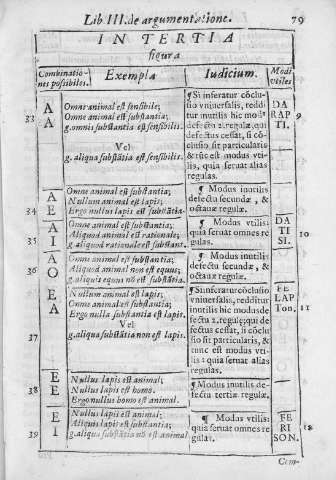 Lib III. de argumentatione. 79
IN TERTIA
figura
Combinationes possibiles. Exempla Iudicium. Modi vtiles
33
A
A
Omne animal est sensibile;
Omne animal est substantia;
g. omnis substantia est sensibilis.
Vel
g. aliqua substãtia est sensibilis.
¶ Si inferatur cõclusio
vniuersalis, redditur
inutilis hic modꝰ
defectu 2. regulæ, qui
defectus cessat, si cõclusio
sit particularis
& tũc est modus vtilis,
quia seruat alias
regulas.
DA
RAP
TI.
9
34
A
E
Omne animal est substantia;
Nullum animal est lapis;
Ergo nullus lapis est substãtia.
¶ Modus inutilis
defectu secundæ, &
octauæ regulæ.
35
A
I
Omne animal est substantia;
Aliquod animal est rationale;
g. aliquod rationale est substant.
¶ Modus vtilis:
quia seruat omnes regulas.
DA
TI
SI.
10
36
A
O
Omne animal est substantia;
Aliquod animal non est equus;
g. aliquis equus nõ est substãtia.
¶ Modus inutilis
defectu secundæ, &
octauæ regulæ.
37
E
A
Nullum animal est lapis;
Omne animal est substantia;
Ergo nulla substantia est lapis.
Vel
g. aliqua substãtia non est lapis.
¶ Si inferatur cõclusio
vniuersalis, redditur
inutilis hic modus defectu
2. regulę; qui defectus
cessat, si cõclusio
sit particularis, &
tunc est modus vtilis
: quia seruat alias
regulas.
FE
LAP
Ton.
11
38
E
E
Nullus lapis est animal;
Nullus lapis est homo.
Ergo nullus homo est animal.
¶ Modus inutilis defectu
tertiæ regulæ.
39
E
I
Nullus lapis est animal;
Aliquis lapis est substantia;
g. aliqua substãtia nõ est animal
¶ Modus vtilis:
quia seruat omnes regulas.
FE
RI
SON.
Com-